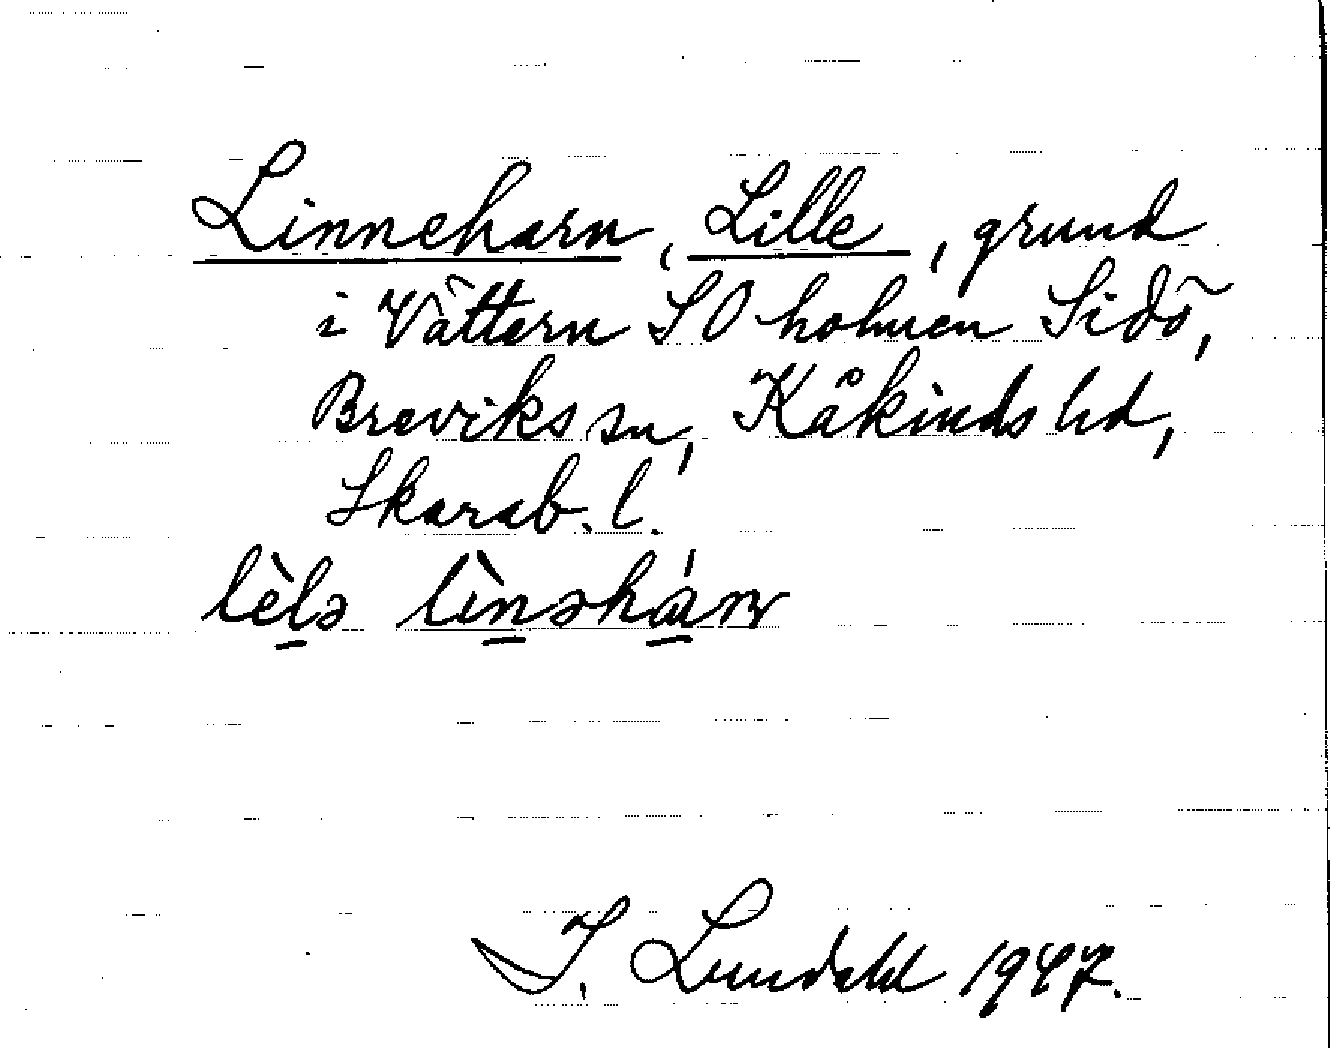 Linneharn, Lille, grund
i Vättern SO holmen Sidö,
Breviks sn, Kåkinds hd,
Skarab. l.
lèlə lìnəhárn
I. Lundahl 1947.